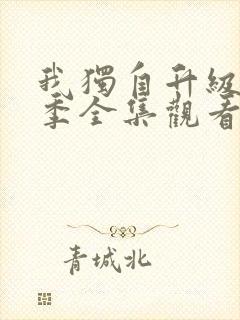 我獨自升級
季全集觀看
青城北